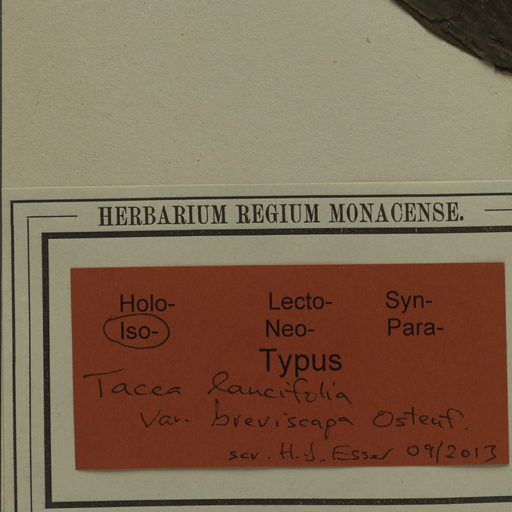 HERBARIUM REGIUM MONACENSE.
Holo- Lecto- Syn-
Iso- Neo- Para-
Typus
Tacca lancifolia
var. breviscapa Ostenf.
scr. H.-J. Esser 09/2013